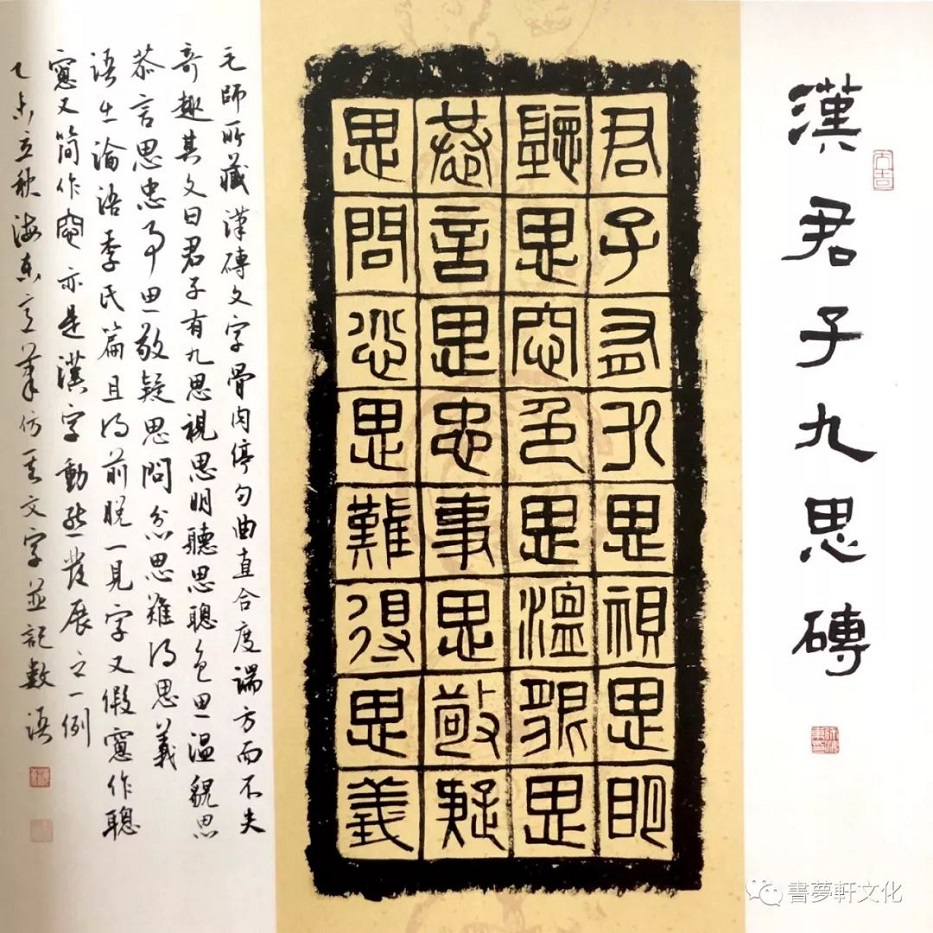 漢君子九思磚
君子有九思視思明
聽思窓色思溫貌思
恭言思忠事思敬疑
思問忿思難得思義
毛師所藏漢磚文字骨肉停勻曲直合度端方而不失
奇趣其文曰君子有九思視思明聽思聰色思溫貌思
恭言思忠事思敬疑思問忿思難得思義
語出論語季氏篇且得前脫一見字又假窻作聰
窻又簡作窓亦是漢字動態發展之一例
乙未立秋海東筆仿其文字並記數語
書夢軒文化